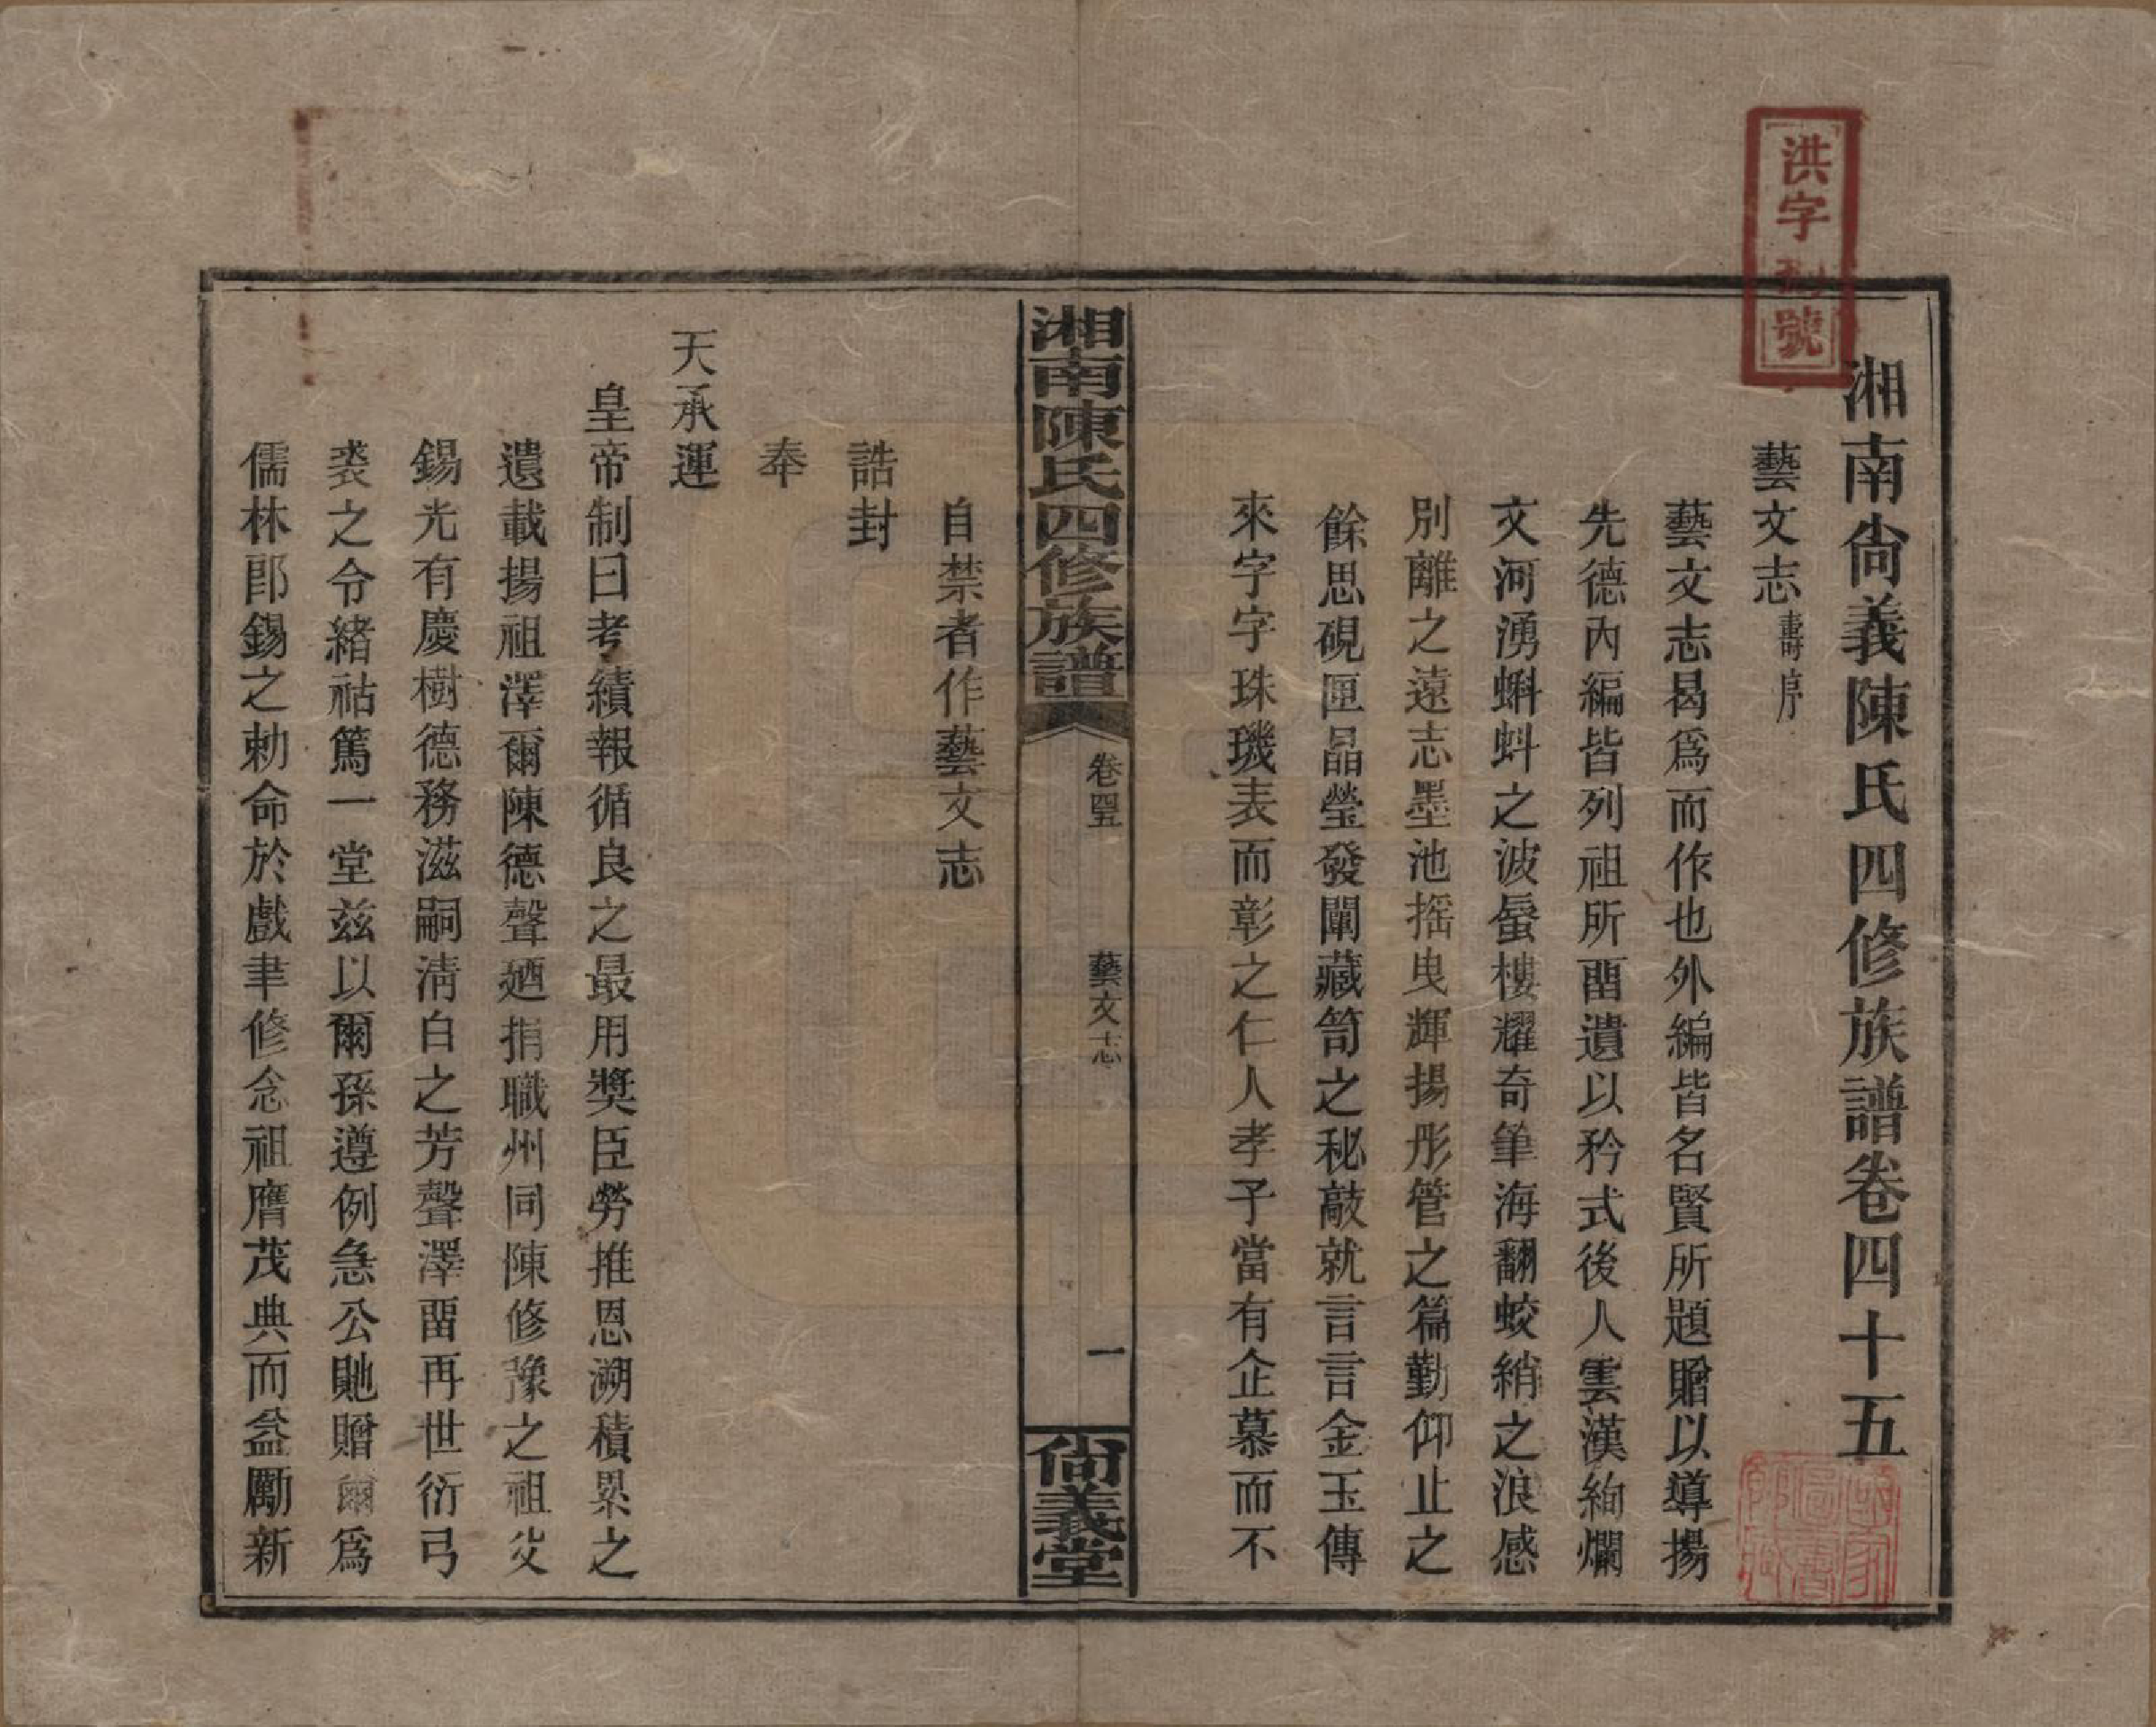 洪字號
湘南尙義陳氏四修族譜卷四十五
藝文志壽序
藝文志曷爲而作也外編皆名賢所題贈以導揚
先德內編皆列祖所畱遺以矜式後人雲漢絢爛
文河湧蝌蚪之波蜃樓耀奇筆海翻蛟綃之浪感
別離之遠志墨池搖曳輝揚彤管之篇勤仰止之
餘思硯匣晶瑩發闡藏笥之秘敲就言言金玉傳
來字字珠璣表而彰之仁人孝子當有企慕而不
湘南陳氏四修族譜
卷四五
藝文志
一
尙義堂
自禁者作藝文志
誥封
奉
天承運
皇帝制曰考績報循良之最用獎臣勞推恩溯積累之
遺載揚祖澤爾陳德聲廼捐職州同陳修豫之祖父
錫光有慶樹德務滋嗣清白之芳聲澤畱再世衍弓
裘之令緒祜篤一堂兹以爾孫遵例急公貤贈爾爲
儒林郎錫之勅命於戲聿修念祖膺茂典而益勵新